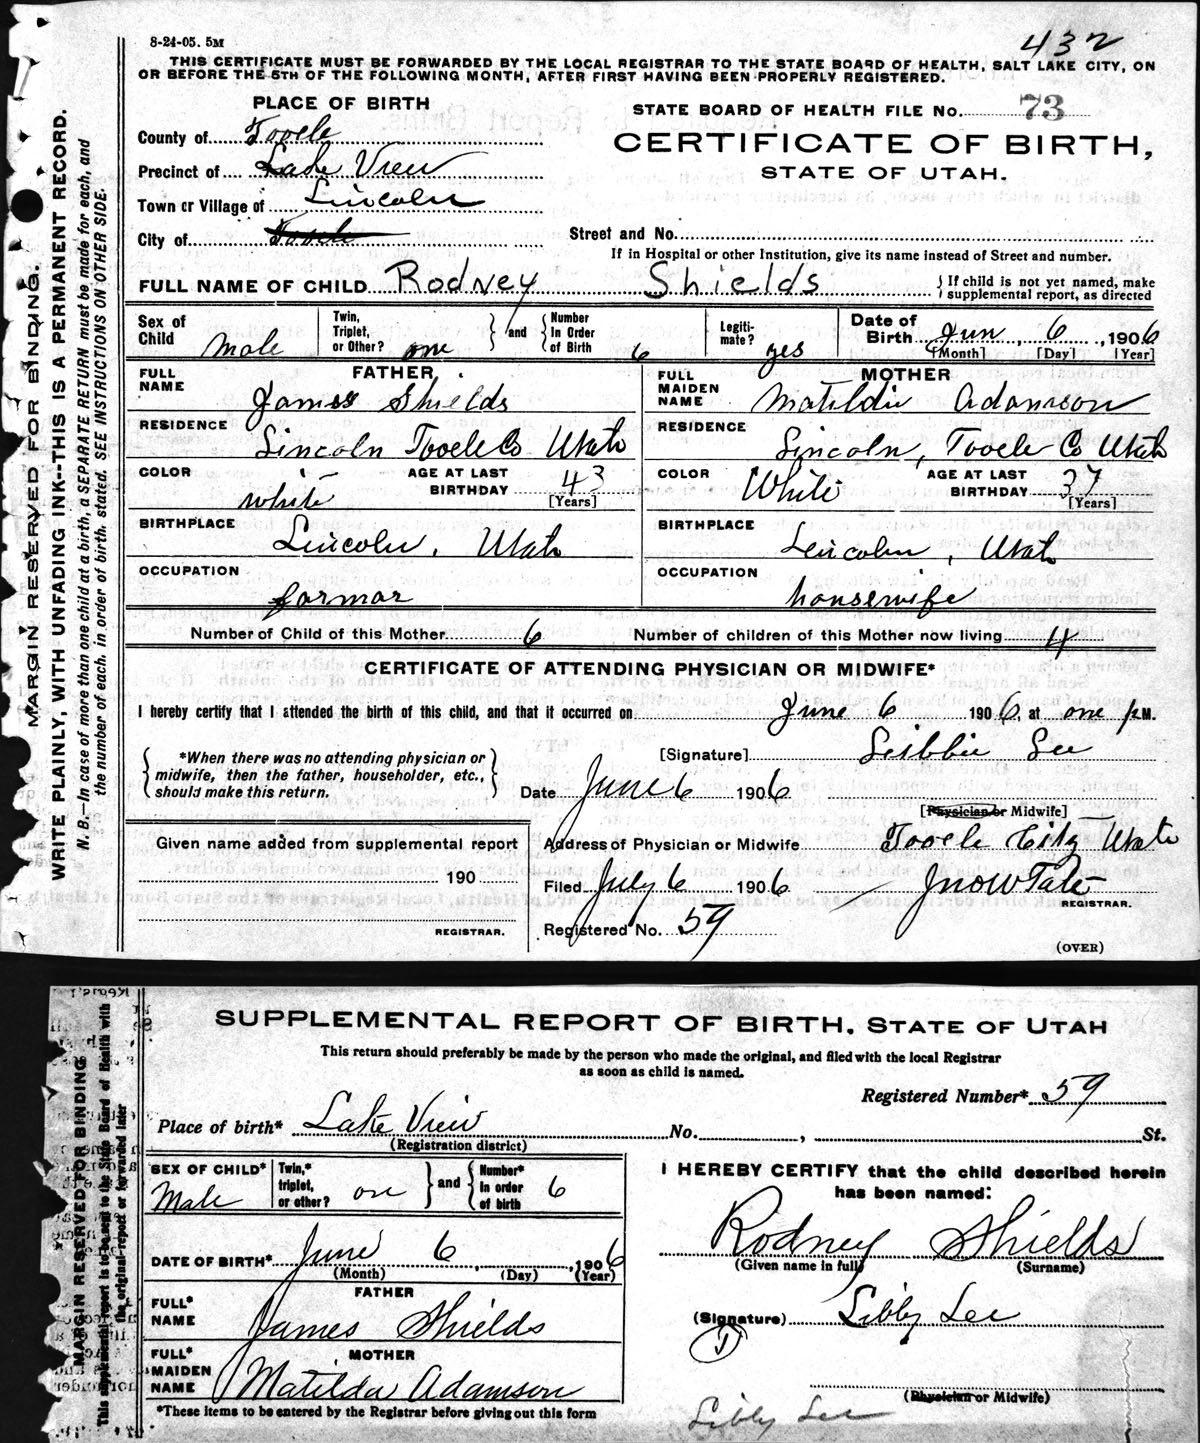 8-24-05. 5M
432
THIS CERTIFICATE MUST BE FORWARDED BY THE LOCAL REGISTRAR TO THE STATE BOARD OF HEALTH, SALT LAKE CITY, ON
OR BEFORE THE 5TH OF THE FOLLOWING MONTH, AFTER FIRST HAVING BEEN PROPERLY REGISTERED.
PLACE OF BIRTH
STATE BOARD OF HEALTH FILE No. 73
County of Tooele
CERTIFICATE OF BIRTH,
Precinct of Lake View
STATE OF UTAH.
Town or Village of Lincoln
City of Tooele
Street and No.
If in Hospital or other Institution, give its name instead of Street and number.
FULL NAME OF CHILD Rodney Shields
If child is not yet named, make
supplemental report, as directed
Sex of Child Male
Twin, Triplet, or Other? one
and
Number In Order of Birth 6
Legiti- mate? yes
Date of Birth Jun 6, 1906
[Month] [Day] [Year]
FATHER
FULL NAME James Shields
RESIDENCE Lincoln Tooele Co Utah
COLOR white
AGE AT LAST BIRTHDAY 43
[Years]
BIRTHPLACE Lincoln, Utah
OCCUPATION farmar
MOTHER
FULL MAIDEN NAME Matildie Adamson
RESIDENCE Lincoln, Tooele Co Utah
COLOR White
AGE AT LAST BIRTHDAY 37
[Years]
BIRTHPLACE Lincoln, Utah
OCCUPATION housewife
Number of Child of this Mother 6
Number of children of this Mother now living 4
CERTIFICATE OF ATTENDING PHYSICIAN OR MIDWIFE*
I hereby certify that I attended the birth of this child, and that it occurred on June 6 1906, at one P.M.
*When there was no attending physician or
midwife, then the father, householder, etc.,
should make this return.
[Signature] Libbie Lee
Date June 6 1906
[Physician or Midwife]
Given name added from supplemental report
190
REGISTRAR.
Address of Physician or Midwife Tooele City Utah
Filed July 6 1906
Jno W Tate
REGISTRAR.
Registered No. 59
(OVER)
MARGIN RESERVED FOR BINDING.
WRITE PLAINLY, WITH UNFADING INK--THIS IS A PERMANENT RECORD.
N. B.--In case of more than one child at a birth, a SEPARATE RETURN must be made for each, and
the number of each, in order of birth, stated. SEE INSTRUCTIONS ON OTHER SIDE.
SUPPLEMENTAL REPORT OF BIRTH. STATE OF UTAH
This return should preferably be made by the person who made the original, and filed with the local Registrar
as soon as child is named.
Registered Number* 59
Place of birth* Lake View No. , St.
(Registration district)
SEX OF CHILD* Male
Twin,* triplet, or other? one
and
Number* in order of birth 6
DATE OF BIRTH* June 6, 1906
(Month) (Day) (Year)
FATHER
FULL* NAME James Shields
MOTHER
FULL* MAIDEN NAME Matilda Adamson
*These items to be entered by the Registrar before giving out this form
I HEREBY CERTIFY that the child described herein
has been named:
Rodney Shields
(Given name in full) (Surname)
(Signature) Libby Lee
(Physician or Midwife)
Libby Lee
MARGIN RESERVED FOR BINDING
This supplemental report is to be sent to the State Board of Health with
the original report or forwarded later